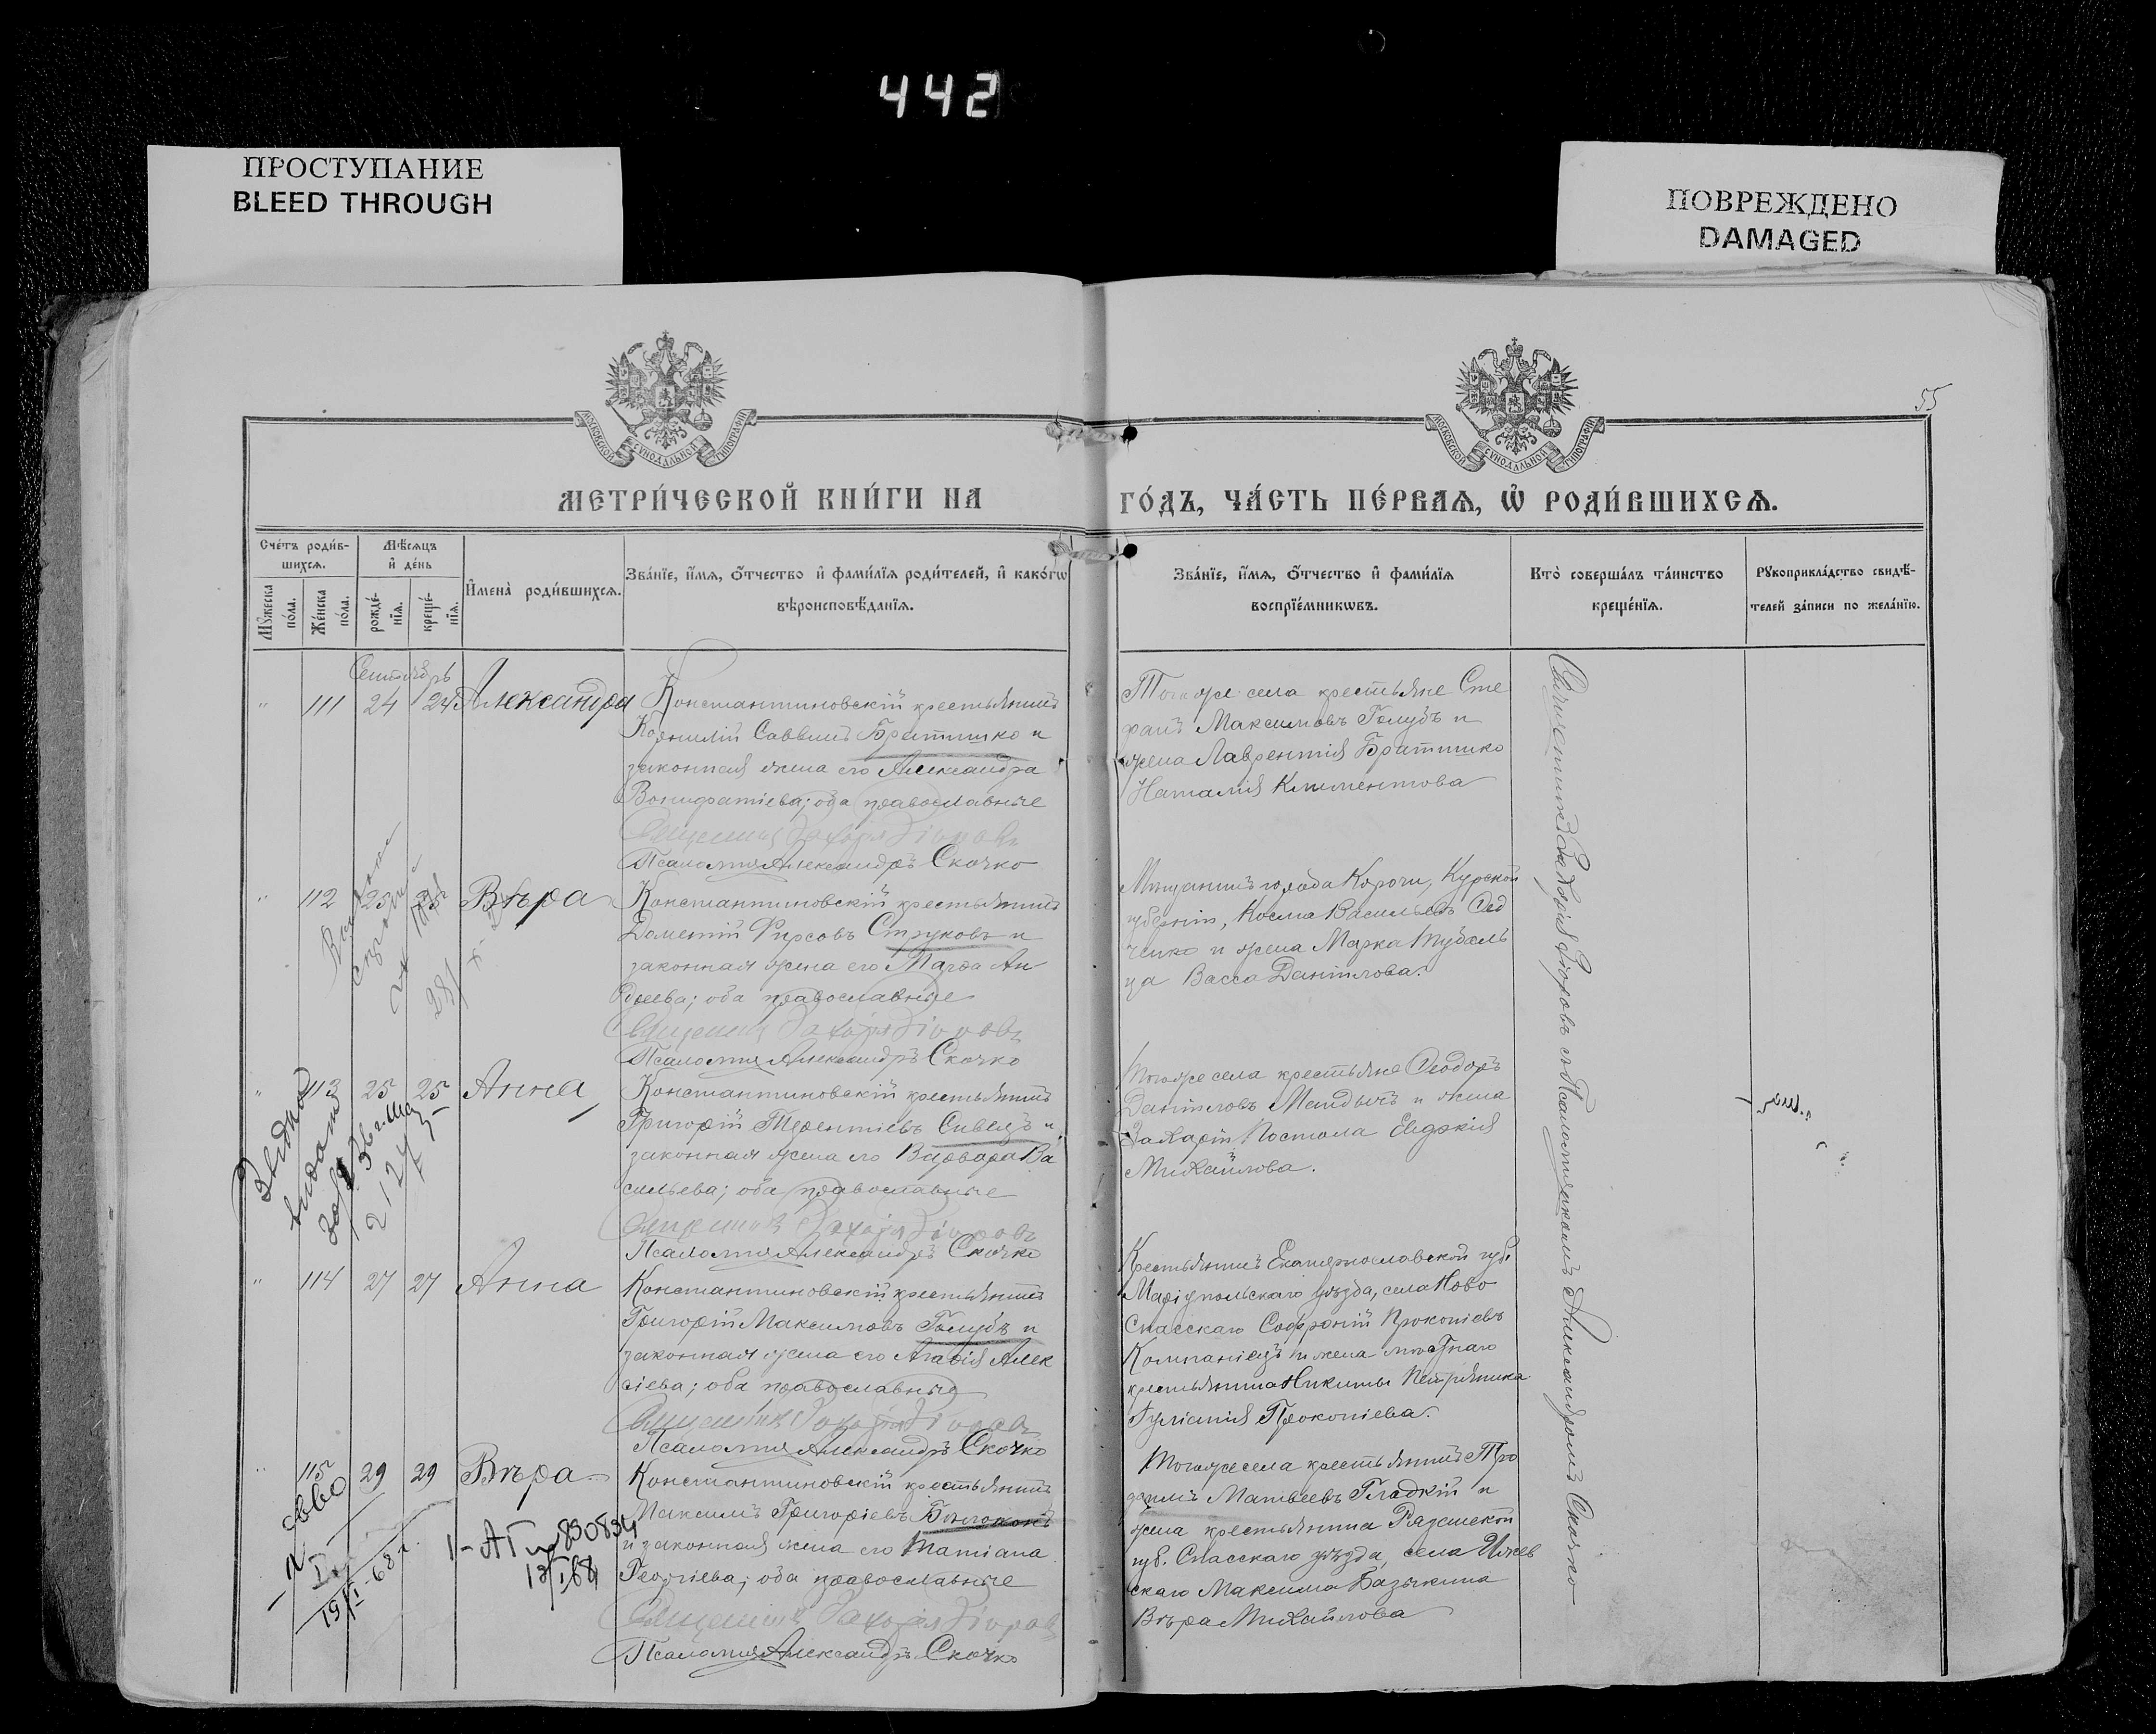 442
ПРОСТУПАНИЕ
BLEED THROUGH
ПОВРЕЖДЕНО
DAMAGED
55
МОСКОВСКОЙ СѴНОДАЛЬНОЙ ТИПОГРАФІИ
МОСКОВСКОЙ СѴНОДАЛЬНОЙ ТИПОГРАФІИ
МЕТРИ́ЧЕСКОЙ КНИ́ГИ НА ГО́ДЪ, ЧА́СТЬ ПЕ́РВАѦ, Ѡ҆ РОДИ́ВШИХСѦ.
Сче́тъ роди́в-
шихсѧ.
Мѣ́сѧцъ
и҆ де́нь
Мꙋжеска по́ла.
Же́нска по́ла.
рожде́-
нїѧ.
креще́-
нїѧ.
И҆мена̀ роди́вшихсѧ.
Зва́нїе, и҆́мѧ, ѻ҆́тчество и҆ фами́лїѧ роди́телей, и҆ како́гѡ
вѣроисповѣ́данїѧ.
Зва́нїе, и҆́мѧ, ѻ҆́тчество и҆ фами́лїѧ
воспрїе́мникѡвъ.
Кто̀ соверша́лъ та́инство
креще́нїѧ.
Рꙋкоприкла́дство свидѣ́-
телей за́писи по жела́нїю.
Сентябрь
" 111 24 24 Александра
Константиновскій крестьянинъ
Корнилій Саввинъ Братишко и
законная жена его Александра
Вонифатіева; оба православные
Священникъ Захарія Діоровъ
Псаломщ Александръ Скочко
Того же села крестьяне Сте
фанъ Максимовъ Голубъ и
жена Лаврентія Братишко
Наталія Климентова
" 112 25 25 Вѣра
Константиновскій крестьянинъ
Дометій Фирсовъ Струковъ и
законная жена его Марѳа Ан
дреева; оба православные
Священникъ Захарія Діоровъ
Псаломщ Александръ Скочко
Мѣщанинъ города Корочи, Курской
губерніи, Косма Васильевъ Сед
ченко и жена Марка
ца Васса Даніилова.
" 113 25 25 Анна
Константиновскій крестьянинъ
Григорій Терентіевъ Сивецъ и
законная жена его Варвара Ва
сильева; оба православные
Священникъ Захарія Діоровъ
Псаломщ Александръ Скочко
Того же села крестьяне Ѳеодоръ
Даніиловъ Мандычъ и жена
Захаріи Постола Евдокія
Михайлова.
" 114 27 27 Анна
Константиновскій крестьянинъ
Григорій Максимовъ Голубъ и
законная жена его Агаѳія Алек
сіева; оба православные
Священникъ Захарія Діоровъ
Псаломщ Александръ Скочко
Крестьянинъ Екатеринославской губ.
Маріупольскаго уѣзда, села Ново
спасскаго Софроній Прокопіевъ
Компаніецъ и жена мѣстнаго
крестьянина Никиты Петряника
Іуліанія Прокопіева.
" 115 29 29 Вѣра
Константиновскій крестьянинъ
Максимъ Григоріевъ Бѣлоконь
и законная жена его Татіана
Георгіева; оба православные
Священникъ Захарія Діоровъ
Псаломщ Александръ Скочко
Того же села крестьянинъ Тро
фимъ Матвеевъ Гладкій и
жена крестьянина Рязанской
губ. Спасскаго уѣзда, села Ижев
скаго Максима Базыкина
Вѣра Михайлова
Священникъ Захарія Діоровъ съ Псаломщикомъ Александромъ Скочко
1-АГ № 890834